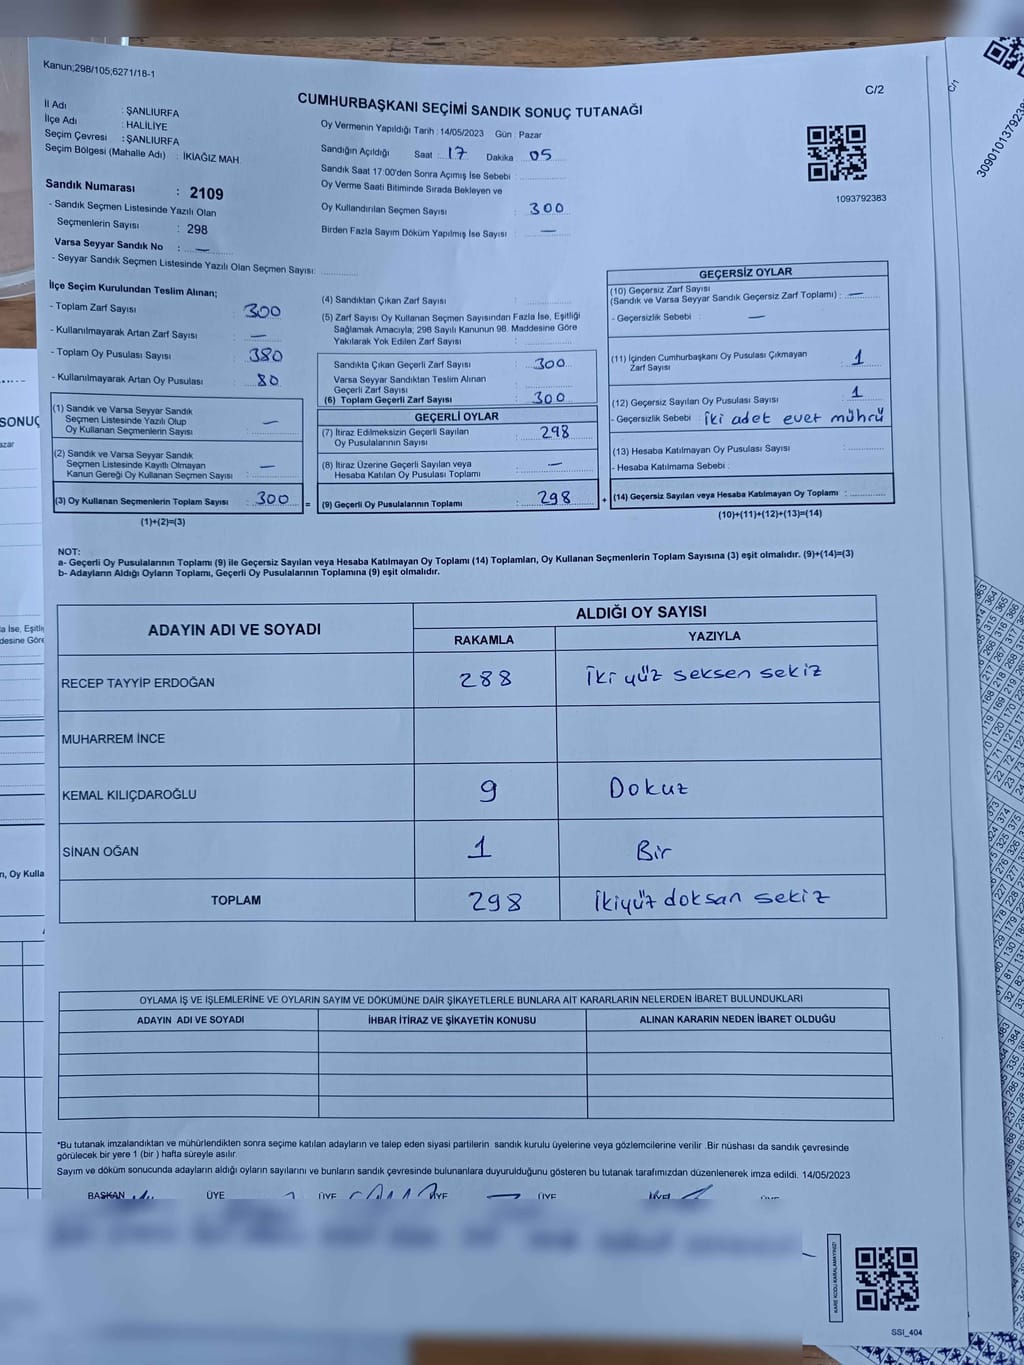 Kanun;298/105;6271/18-1
C/2
C/1
CUMHURBAŞKANI SEÇİMİ SANDIK SONUÇ TUTANAĞI
İl Adı : ŞANLIURFA
İlçe Adı : HALİLİYE
Seçim Çevresi : ŞANLIURFA
Seçim Bölgesi (Mahalle Adı) : İKİAĞIZ MAH.
Sandık Numarası : 2109
- Sandık Seçmen Listesinde Yazılı Olan
Seçmenlerin Sayısı : 298
Varsa Seyyar Sandık No : —
- Seyyar Sandık Seçmen Listesinde Yazılı Olan Seçmen Sayısı:
Oy Vermenin Yapıldığı Tarih : 14/05/2023 Gün : Pazar
Sandığın Açıldığı Saat : 17 Dakika 05
Sandık Saat 17:00'den Sonra Açımış İse Sebebi :
Oy Verme Saati Bitiminde Sırada Bekleyen ve
Oy Kullandırılan Seçmen Sayısı : 300
Birden Fazla Sayım Döküm Yapılmış İse Sayısı : —
1093792383
İlçe Seçim Kurulundan Teslim Alınan;
- Toplam Zarf Sayısı : 300
- Kullanılmayarak Artan Zarf Sayısı : —
- Toplam Oy Pusulası Sayısı : 380
- Kullanılmayarak Artan Oy Pusulası : 80
(1) Sandık ve Varsa Seyyar Sandık
Seçmen Listesinde Yazılı Olup
Oy Kullanan Seçmenlerin Sayısı : —
(2) Sandık ve Varsa Seyyar Sandık
Seçmen Listesinde Kayıtlı Olmayan
Kanun Gereği Oy Kullanan Seçmen Sayısı : —
(3) Oy Kullanan Seçmenlerin Toplam Sayısı : 300 =
(1)+(2)=(3)
(4) Sandıktan Çıkan Zarf Sayısı :
(5) Zarf Sayısı Oy Kullanan Seçmen Sayısından Fazla İse, Eşitliği
Sağlamak Amacıyla; 298 Sayılı Kanunun 98. Maddesine Göre
Yakılarak Yok Edilen Zarf Sayısı :
Sandıkta Çıkan Geçerli Zarf Sayısı : 300
Varsa Seyyar Sandıktan Teslim Alınan
Geçerli Zarf Sayısı :
(6) Toplam Geçerli Zarf Sayısı : 300
GEÇERLİ OYLAR
(7) İtiraz Edilmeksizin Geçerli Sayılan
Oy Pusulalarının Sayısı : 298
(8) İtiraz Üzerine Geçerli Sayılan veya
Hesaba Katılan Oy Pusulası Toplamı : —
(9) Geçerli Oy Pusulalarının Toplamı : 298 +
GEÇERSİZ OYLAR
(10) Geçersiz Zarf Sayısı
(Sandık ve Varsa Seyyar Sandık Geçersiz Zarf Toplamı) : —
- Geçersizlik Sebebi : —
(11) İçinden Cumhurbaşkanı Oy Pusulası Çıkmayan
Zarf Sayısı : 1
(12) Geçersiz Sayılan Oy Pusulası Sayısı : 1
- Geçersizlik Sebebi : iki adet evet mührü
(13) Hesaba Katılmayan Oy Pusulası Sayısı :
- Hesaba Katılmama Sebebi :
(14) Geçersiz Sayılan veya Hesaba Katılmayan Oy Toplamı :
(10)+(11)+(12)+(13)=(14)
NOT:
a- Geçerli Oy Pusulalarının Toplamı (9) ile Geçersiz Sayılan veya Hesaba Katılmayan Oy Toplamı (14) Toplamları, Oy Kullanan Seçmenlerin Toplam Sayısına (3) eşit olmalıdır. (9)+(14)=(3)
b- Adayların Aldığı Oyların Toplamı, Geçerli Oy Pusulalarının Toplamına (9) eşit olmalıdır.
ADAYIN ADI VE SOYADI ALDIĞI OY SAYISI
RAKAMLA YAZIYLA
RECEP TAYYİP ERDOĞAN 288 İki yüz seksen sekiz
MUHARREM İNCE
KEMAL KILIÇDAROĞLU 9 Dokuz
SİNAN OĞAN 1 Bir
TOPLAM 298 İkiyüz doksan sekiz
OYLAMA İŞ VE İŞLEMLERİNE VE OYLARIN SAYIM VE DÖKÜMÜNE DAİR ŞİKAYETLERLE BUNLARA AİT KARARLARIN NELERDEN İBARET BULUNDUKLARI
ADAYIN ADI VE SOYADI İHBAR İTİRAZ VE ŞİKAYETİN KONUSU ALINAN KARARIN NEDEN İBARET OLDUĞU
*Bu tutanak imzalandıktan ve mühürlendikten sonra seçime katılan adayların ve talep eden siyasi partilerin sandık kurulu üyelerine veya gözlemcilerine verilir .Bir nüshası da sandık çevresinde
görülecek bir yere 1 (bir ) hafta süreyle asılır.
Sayım ve döküm sonucunda adayların aldığı oyların sayılarını ve bunların sandık çevresinde bulunanlara duyurulduğunu gösteren bu tutanak tarafımızdan düzenlenerek imza edildi. 14/05/2023
BAŞKAN ÜYE ÜYE ÜYE ÜYE ÜYE ÜYE
KARE KODU KARALAMAYINIZ!
SSI_404